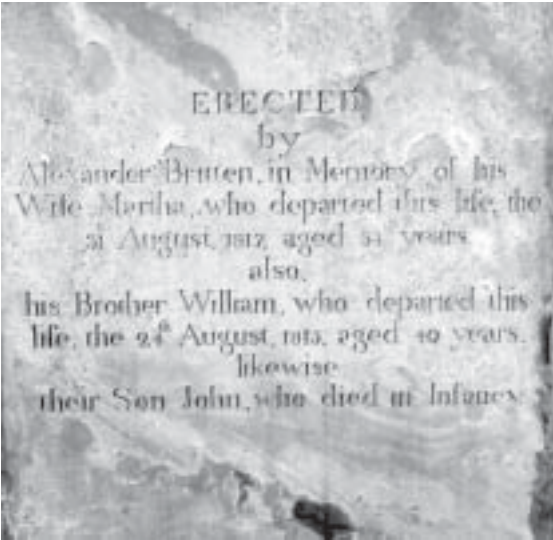 ERECTED
by
Alexander Britten, in Memory of his
Wife Martha, who departed this life, the
31 August, 1817, aged years
also,
his Brother William, who departed this
life, the 24th August, 1813, aged 40 years.
likewise
their Son John, who died in Infancy